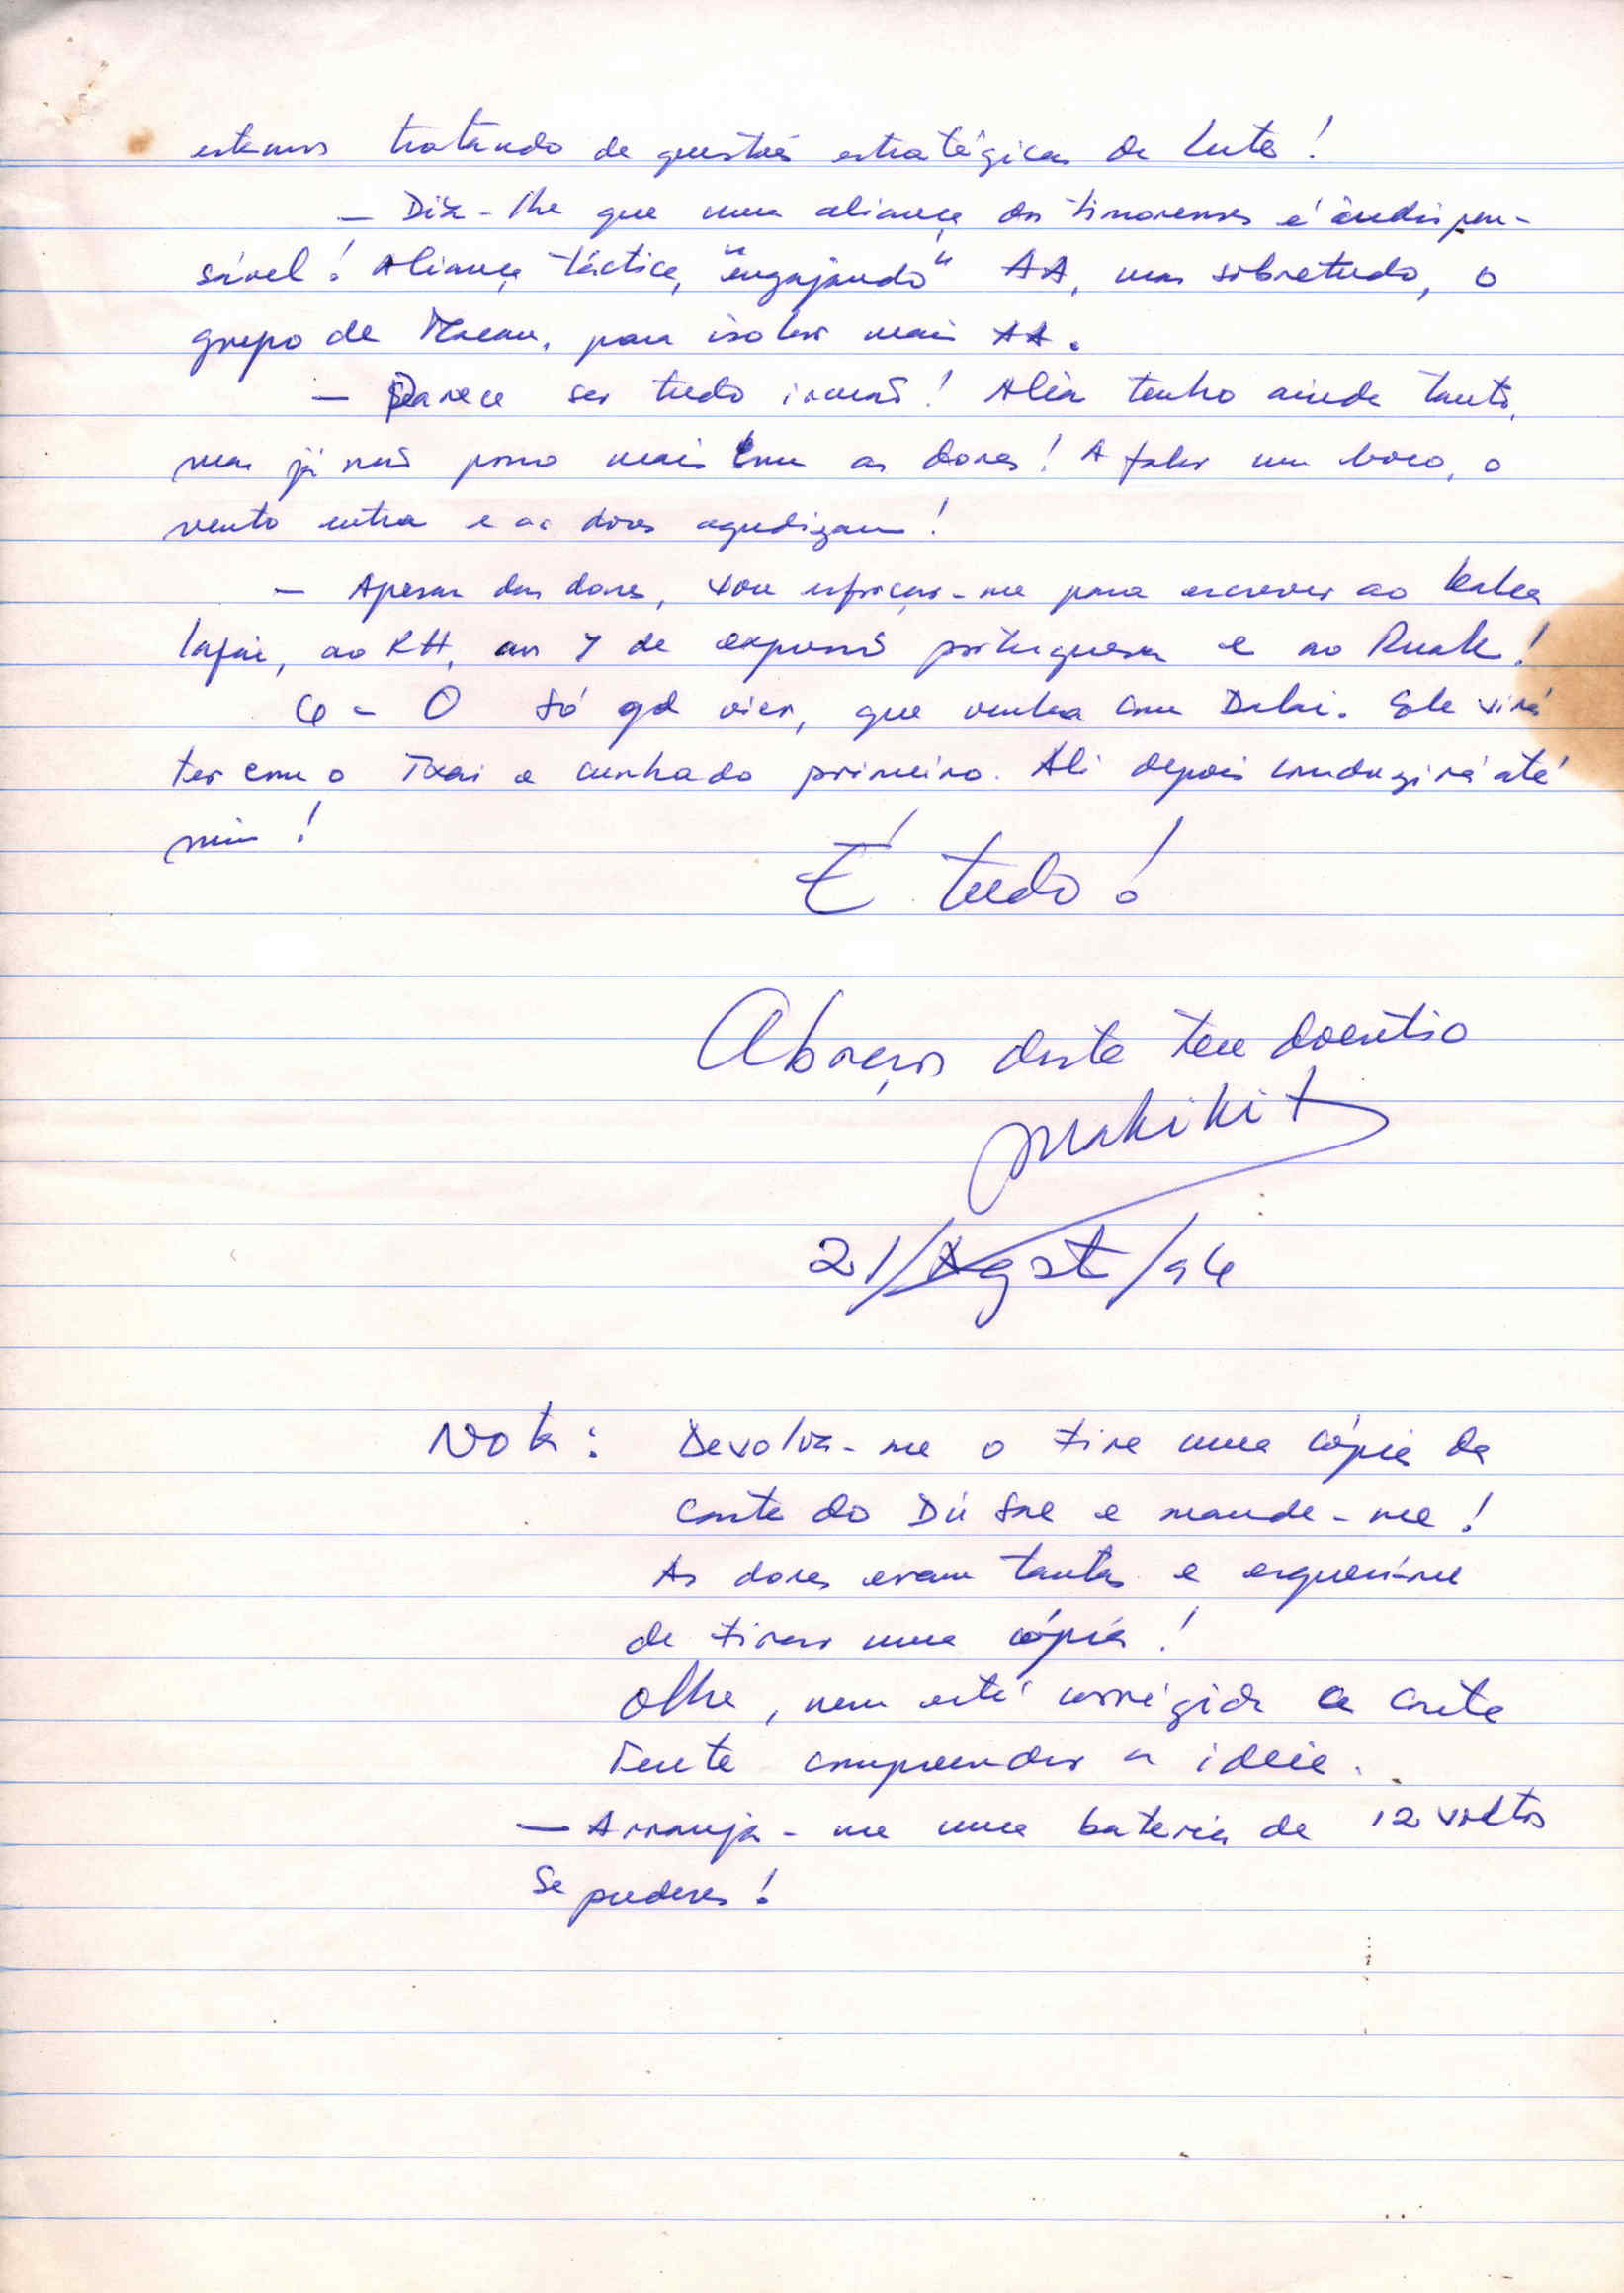 estamos tratando de questões estratégicas da Luta!
— Diz-lhe que uma aliança dos timorenses é indispen-
sável! Aliança táctica, "engajando" AA, mas sobretudo, o
grupo de Macau, para isolar mais AA.
— Parece ser tudo irmão! Aliás tenho ainda tanto,
mas já não posso mais com as dores! A falar um boco, o
vento entra e as dores agudizam!
— Apesar das dores, vou esforçar-me para escrever ao
lafai, ao KH, aos 7 de expressão portuguesa e ao Ruak!
6 - O só qd vier, que venha com Delai. Ele virá
ter com o Txai e cunhado primeiro. Ali depois conduzirá até
mim!
É tudo!
Abraços deste teu doentio
Mahikit
21/Agst/96
Nota: Devolva-me o tire uma cópia da
carta do Dii Sae e mande-me!
As dores eram tantas e esqueci-me
de tirar uma cópia!
Olhe, nem está corrigida a carta
Tente compreender a ideia.
— Arranja-me uma bateria de 12 volts
Se puderes!